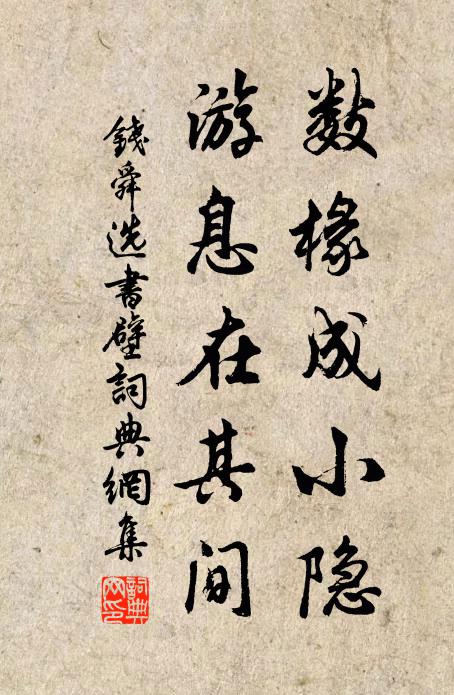 数椽成小隐
游息在其间
錢舜选書壁詞典網集
詞典网印